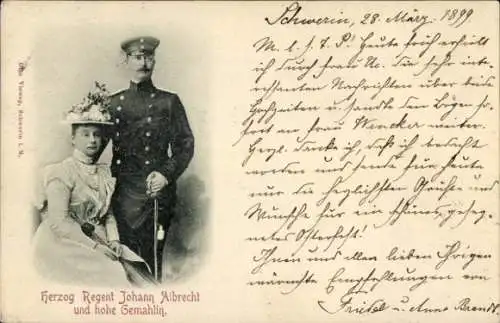 Schwerin, 28. März 1899.
M. l. s. T. P.! Heute früh erhielt
ich durch Frau N. die sehr inte-
ressanten Nachrichten über beide
Hochzeiten und sandte den Bogen so-
fort an Frau Wencker weiter.
Herzl. Dank, daß ich bedacht
worden und sende für heute
nur die herzlichsten Grüße und
Wünsche für ein schönes, geseg-
netes Osterfest!
Ihnen und allen lieben Ihrigen
wärmste Empfehlungen von
Friedel u. Anna Brandt.
Herzog Regent Johann Albrecht
und hohe Gemahlin.
Schwerin i. M.